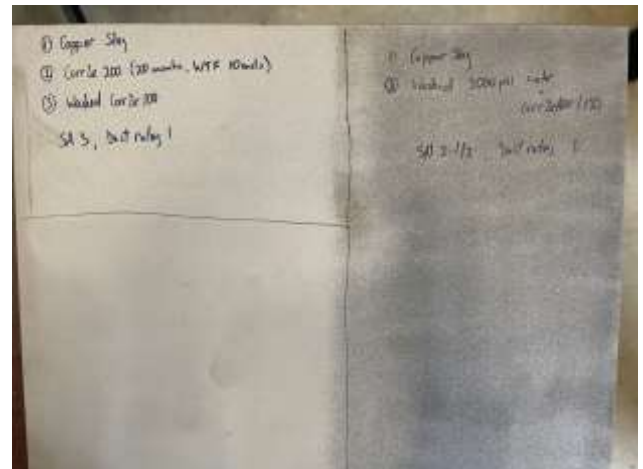 ① Copper Slag
② Corr Ze 200 (20 minutes, WTF 10 mils)
③ Washed Corr Ze 100
SA 3, Dust rating 1
① Copper Slag
② Washed 3000 psi water
SA 2-1/2 Dust rating 1